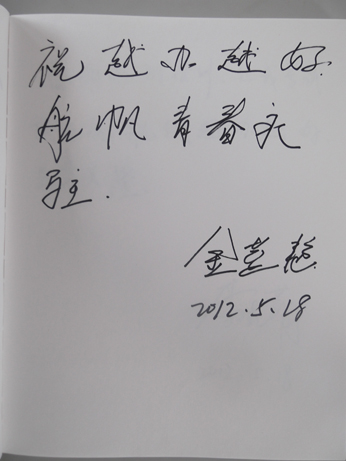 祝越办越好
航帆青春永
驻.
金
2012.5.18